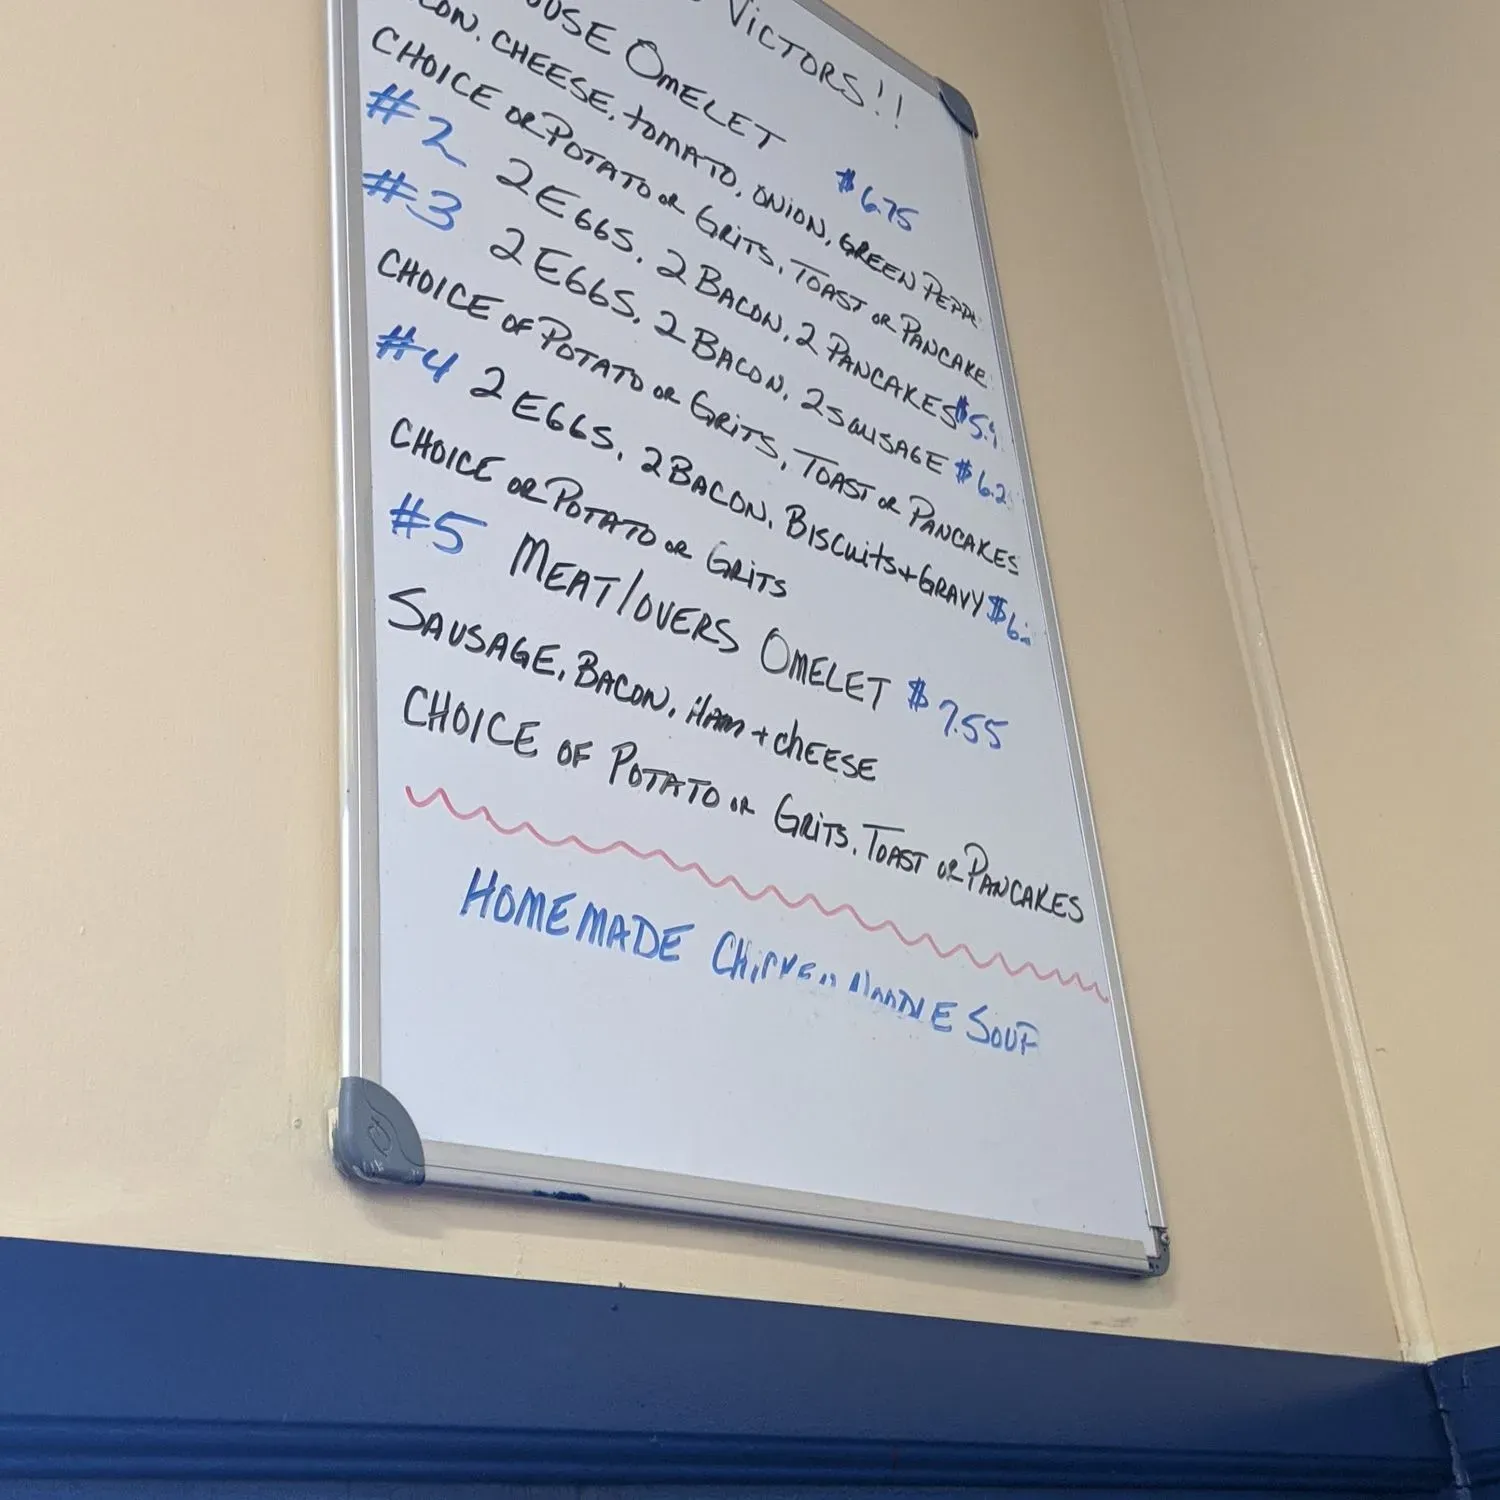 VICTORS!!
OUSE OMELET $6.75
CON. CHEESE, TOMATO, ONION, GREEN PEPPE
CHOICE OR POTATO OR GRITS, TOAST OR PANCAKE
#2 2 EGGS, 2 BACON, 2 PANCAKES $5.9
#3 2 EGGS, 2 BACON, 2 SAUSAGE $6.2
CHOICE OF POTATO OR GRITS, TOAST OR PANCAKES
#4 2 EGGS, 2 BACON, BISCUITS + GRAVY $6.
CHOICE OR POTATO OR GRITS
#5 MEAT/OVERS OMELET $7.55
SAUSAGE, BACON, HAM + CHEESE
CHOICE OF POTATO OR GRITS, TOAST OR PANCAKES
HOMEMADE CHICKEN NOODLE SOUP